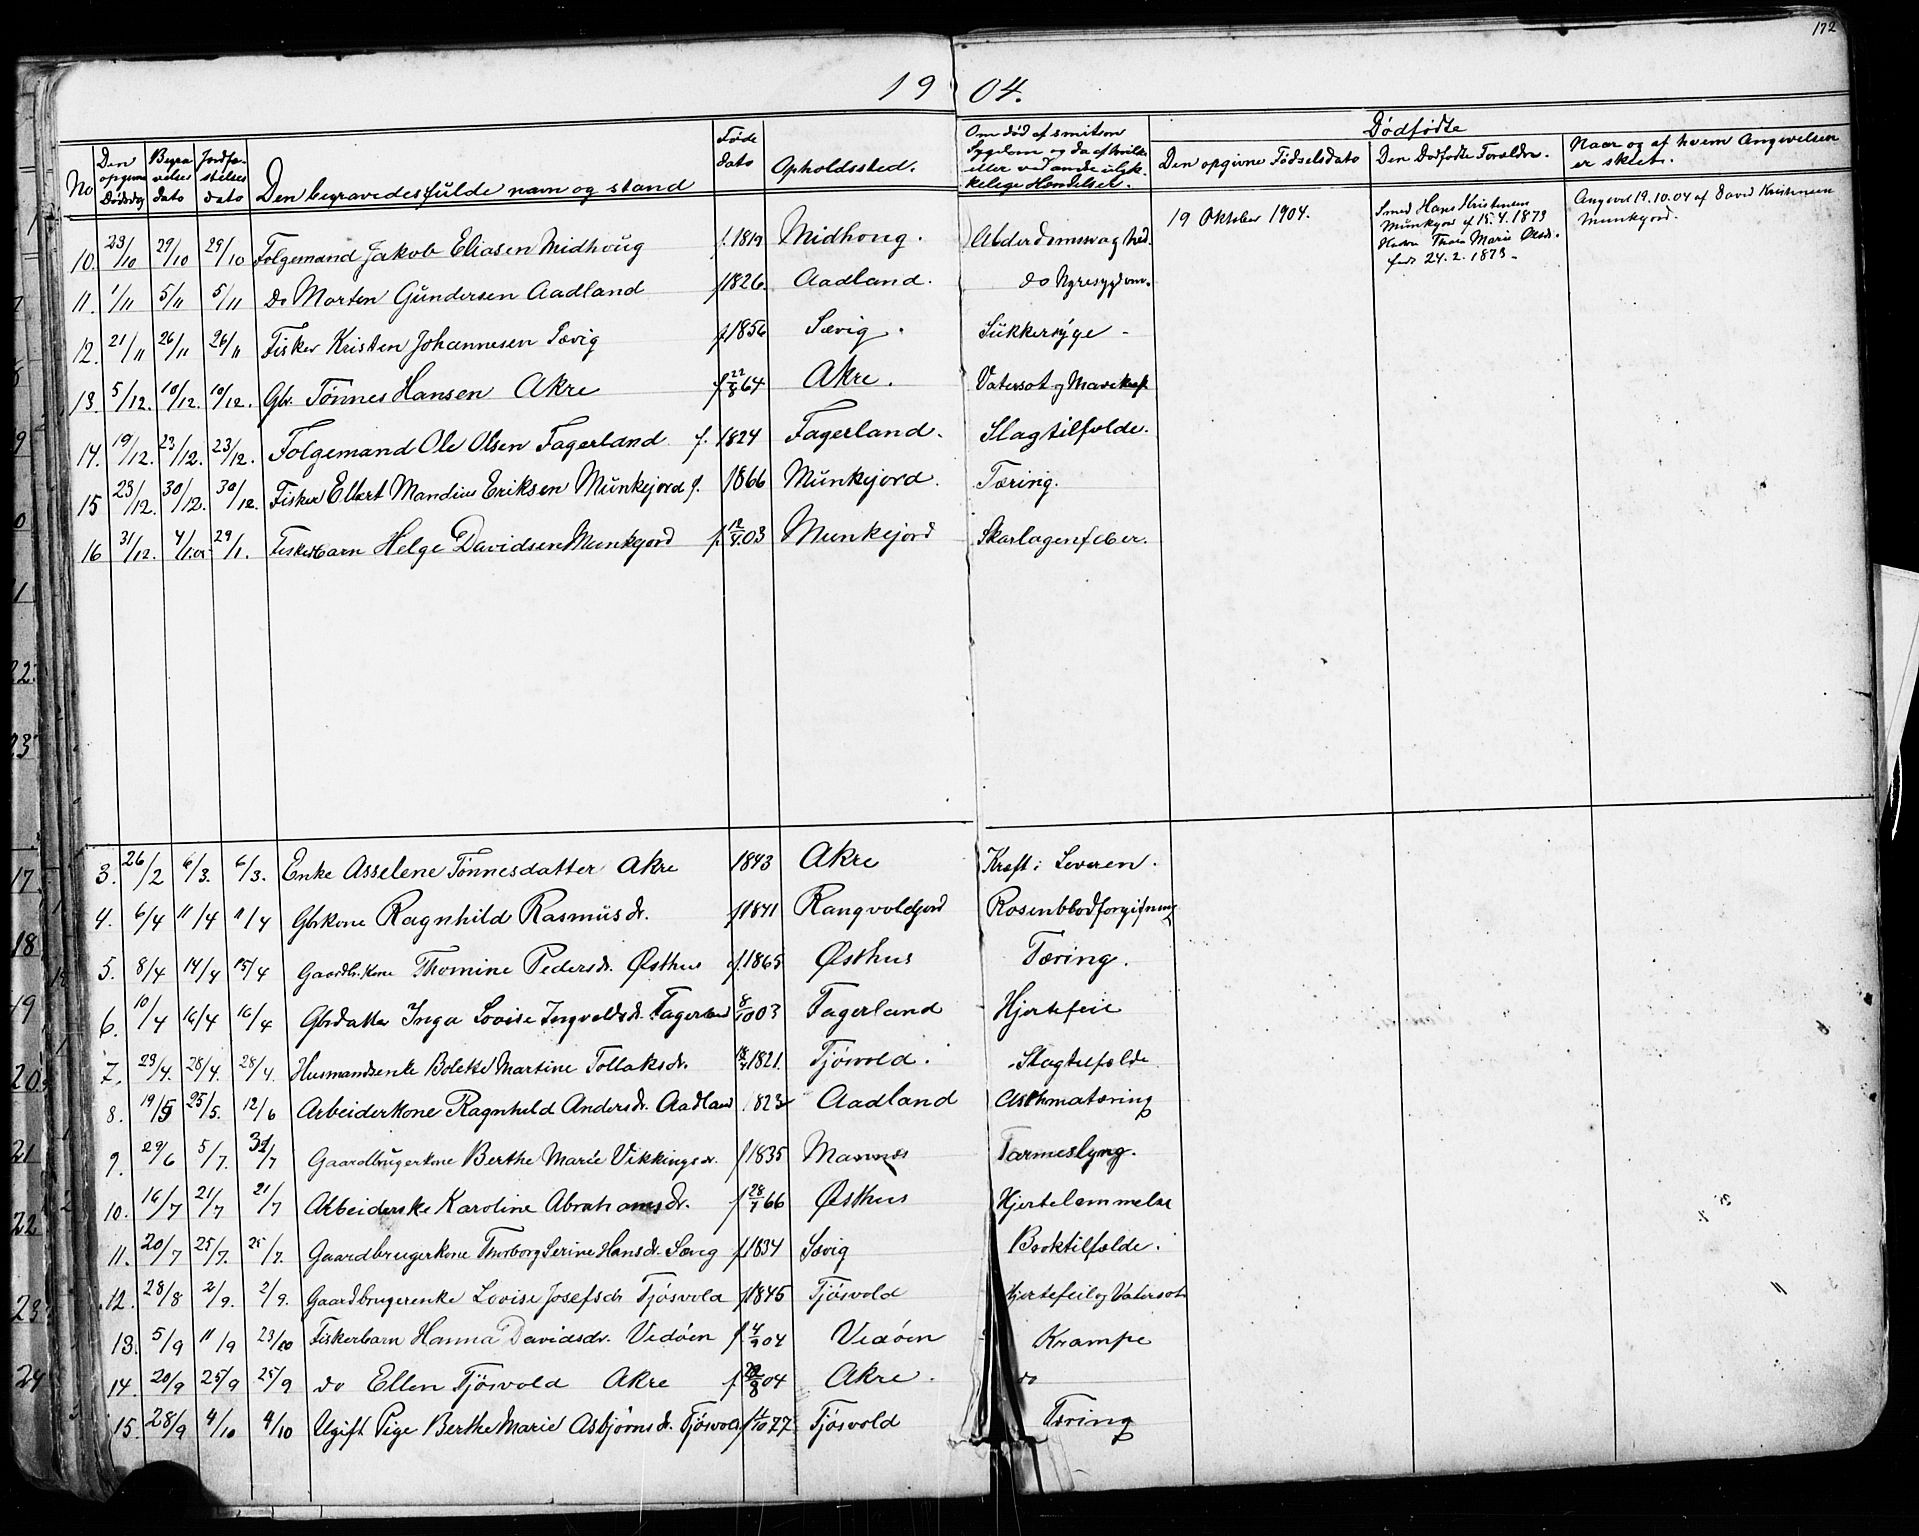 172
1904.
No
Den opgivne Dødsdag
Begravelses dato
Jordfæstelses dato
Den begravedes fulde navn og stand
Føde dato
Opholdssted.
Om død af smitsom Sygdom
eller ved andre ulykkelige Hendelser.
Dødfødte
Den opgivne Fødselsdato
Den Dødfødte Forældre.
Naar og af hvem Angivelsen er skeet.
10. 23/10 29/10 29/10 Folgemand Jakob Eliasen Midhoug f. 1819 Midhoug. Alderdomssvaghed.
19 Oktober 1904.
Smed Hans Kristensen
Munkejord f 15.4.1873
Hustru Thea Marie Olsdr.
født 24.2.1873 -
Angivet 19.10.04 af David Kristensen
Munkejord.
11. 1/11 5/11 5/11 Do Morten Gundersen Aadland f1826. Aadland. do Nyresygdom.
12. 21/11 26/11 26/11 Fisker Kristen Johannesen Sævig f.1856 Sævig. Sukkersyge -
13. 5/12. 10/12. 10/12. Gbr. Tønnes Hansen Akre f. 22/8 64 Akre. Vatersot og Mavekræft
14. 19/12. 23/12. 23/12. Folgemand Ole Olsen Fagerland f. 1824 Fagerland. Slagtilfælde.
15 23/12. 30/12. 30/12. Fisker Elbert Mandius Eriksen Munkejord f. 1866 Munkejord. Tæring.
16 31/12. 4/1.05 29/1. Fiskerbarn Helge Davidsen Munkejord f. 03 Munkejord Skarlagenfeber.
3. 26/2 6/3. 6/3. Enke Asselene Tønnesdatter Akre 1843 Akre Kræft i Leveren.
4. 6/4 11/4 11/4 Gbrkone Ragnhild Rasmusdr. f1841 Rangvoldejord Rosenblodforgiftning
5. 8/4 14/4 15/4 Gaardbr.kone Thomine Pedersdr. Østhus f.1865 Østhus Tæring.
6. 10/4 16/4 16/4 Gbrdatter Inga Lovise Ingvaldsdr. Fagerland 8/10 03 Fagerland Hjertefeil
7. 23/4. 28/4. 28/4. Husmandsenke Bolette Martine Tollaksdr. 1821. Tjøsvold. Slagtilfælde
8. 19/5 25/5. 12/6 Arbeiderkone Ragnhild Andersdr. Aadland 1823 Aadland Asthmatæring
9. 29/6 5/7. 31/7 Gaardbrugerkone Berthe Marie Vikkingsdr. f1835 Mannes Tarmeslyng.
10. 16/7 21/7 21/7 Arbeiderske Karoline Abrahamsdr. f 28/7 66 Østhus Hjertelammelse
11. 20/7 25/7. 25/7. Gaardbrugerkone Thorborg Serine Hansdr. Sævig f1834 Sævig Broktilfælde.
12. 28/8 2/9. 2/9. Gaardbrugerenke Lovise Josefsdr Tjøsvold f1845 Tjøsvold Hjertefeil og Vatersot
13. 5/9 11/9 23/10 Fiskerbarn Hanna Davidsdr. Vedøen f 4/9 04 Vedøen Krampe
14. 20/9 25/9 25/9 do Ellen Tjøsvold Akre f. 04 Akre. do
15. 28/9 4/10 4/10 Ugift Pige Berthe Marie Asbjørnsdr. Tjøsvold f 77 Tjøsvold Tæring